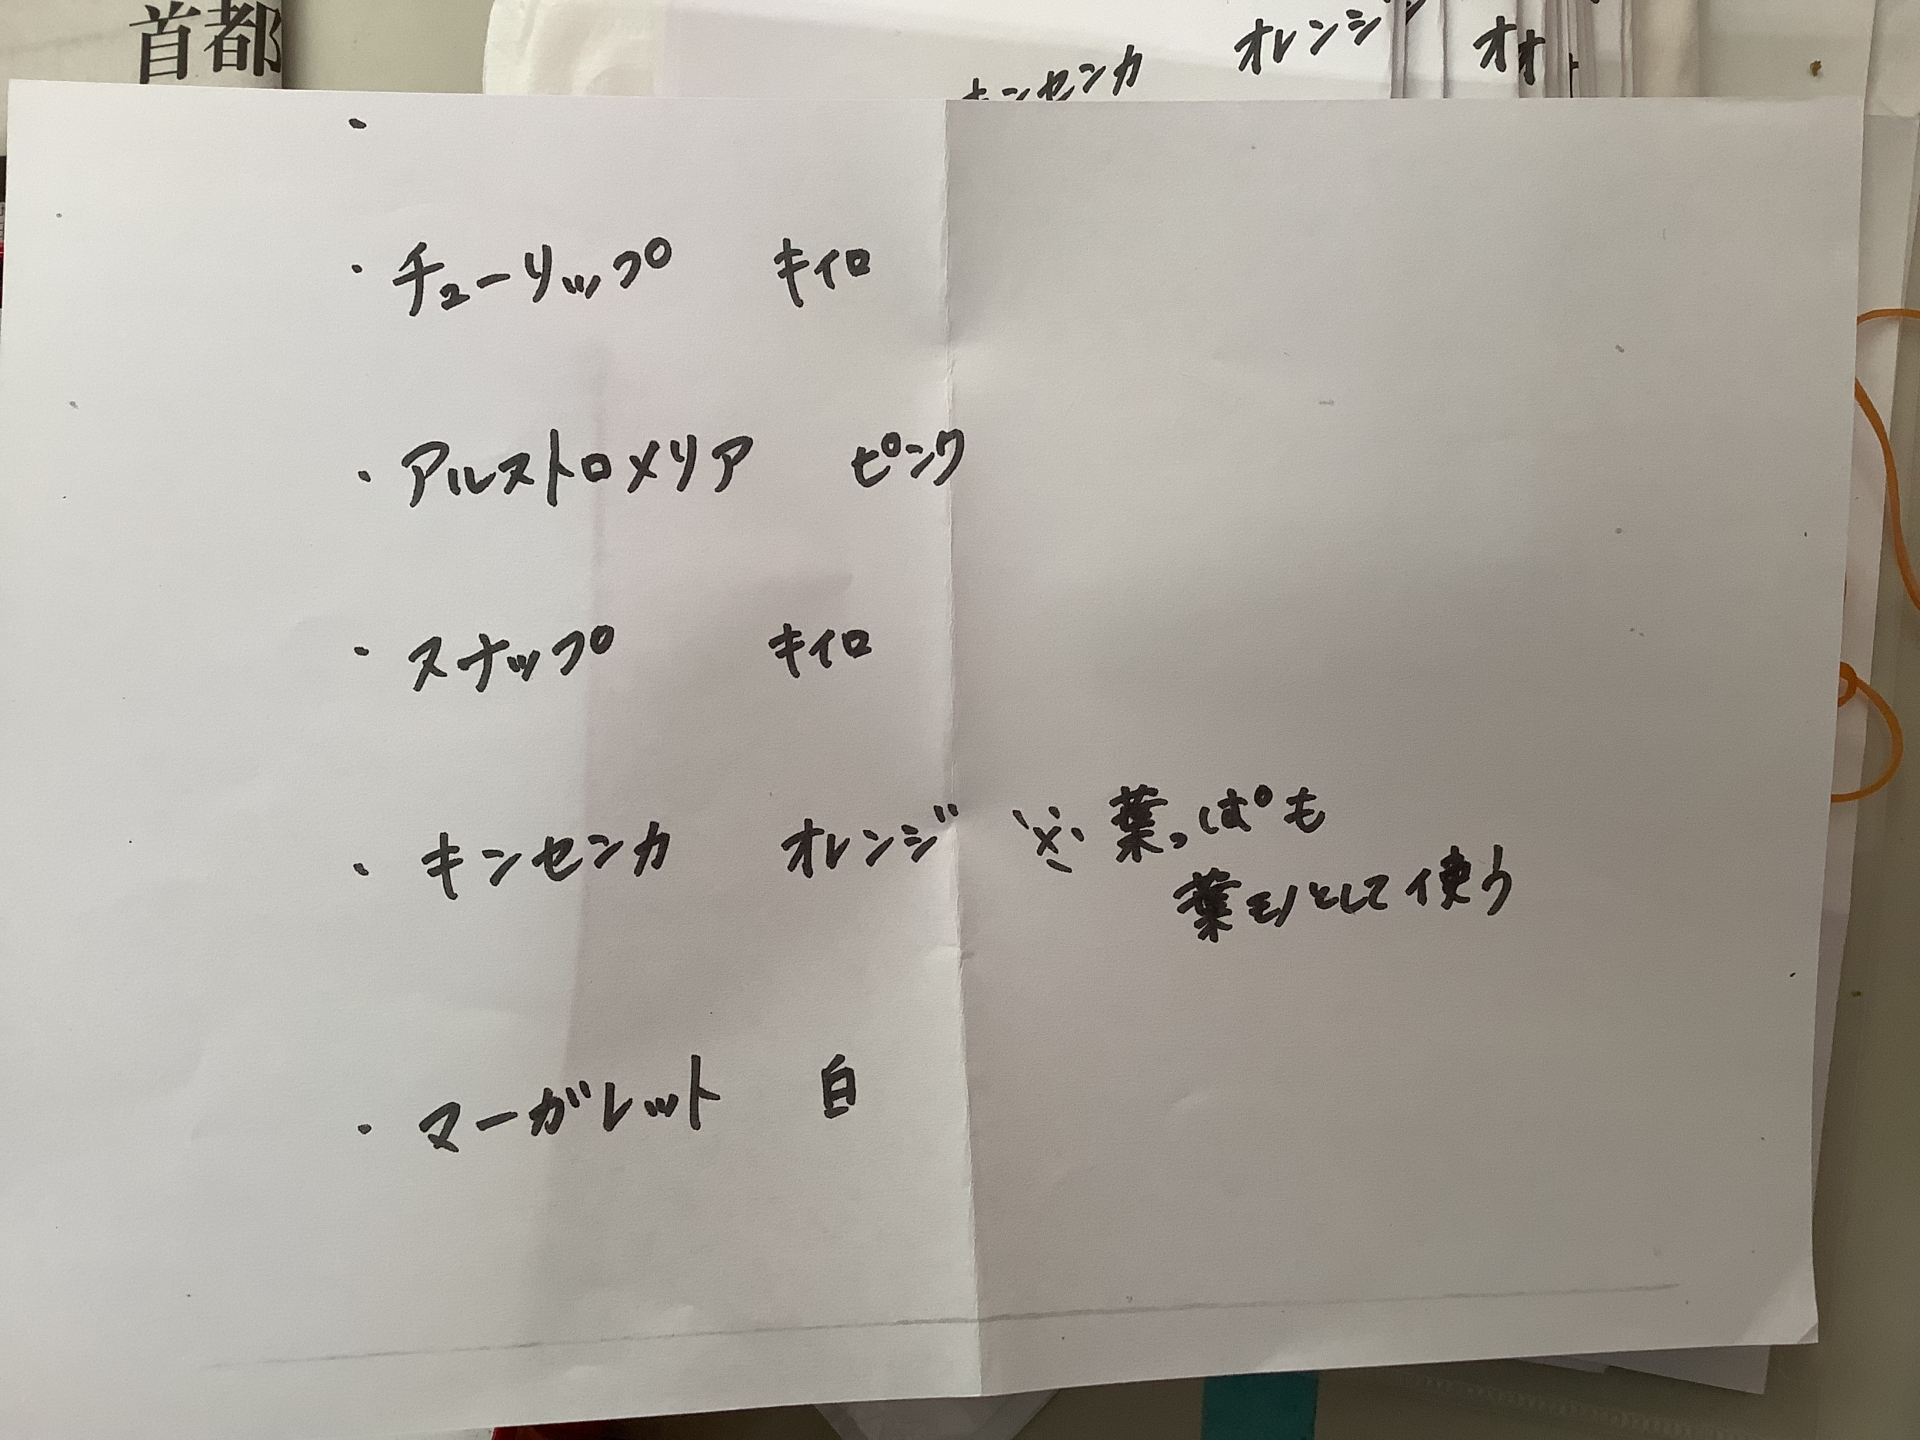 首都
キンセンカ オレンジ オオ
・
・チューリップ キイロ
・アルストロメリア ピンク
・スナップ キイロ
・キンセンカ オレンジ ※葉っぱも
葉モノとして使う
・マーガレット 白